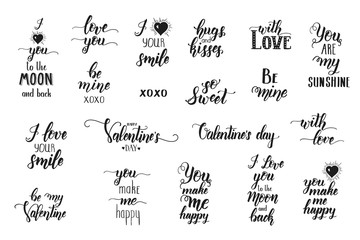 I
you
to the
MOON
and back
love
you
be
mine
XOXO
I
YOUR
smile
hugs
and
kisses
XOXO
so
Sweet
with
LOVE
Be
mine
You
ARE
my
SUNSHINE
I love
your
smile
be my
Valentine
HAPPY
Valentine's
DAY
you
make
me
happy
Valentine's day
You
make
me
happy
I Love
you
to the
Moon
and
back
with
love
you
make
me
happy